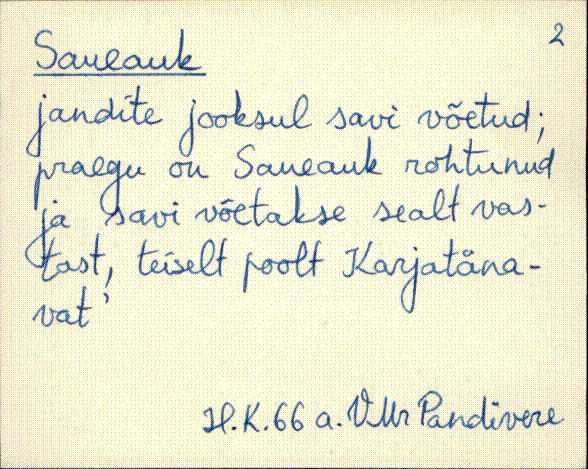 2
Saueauk
jandite jooksul savi võetud;
praegu on Saueauk rohtunud
ja savi võetakse sealt vas-
tast, teiselt poolt Karjatäna-
vat'
H.K. 66 a. VMr Pandivere